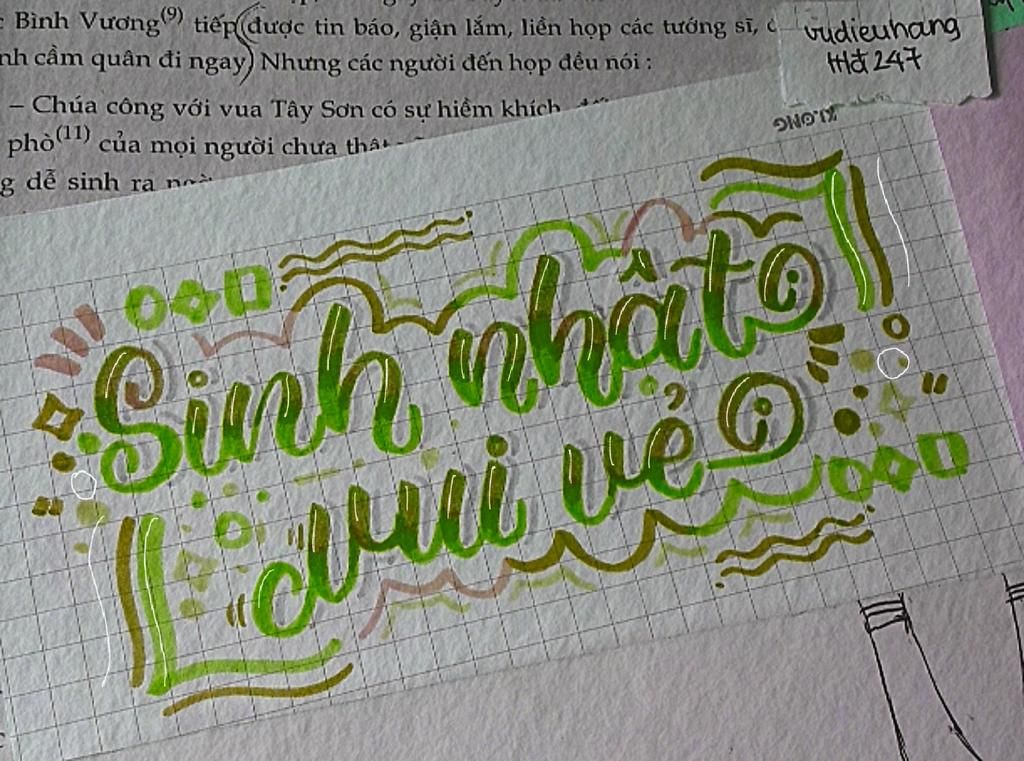 Bình Vương(9) tiếp được tin báo, giận lắm, liền họp các tướng sĩ,
cầm quân đi ngay) Nhưng các người đến họp đều nói :
– Chúa công với vua Tây Sơn có sự hiềm khích,
phò(11) của mọi người chưa
dễ sinh ra
vudieuhang
Hđ 247
KLONG
Sinh nhật
vui vẻ